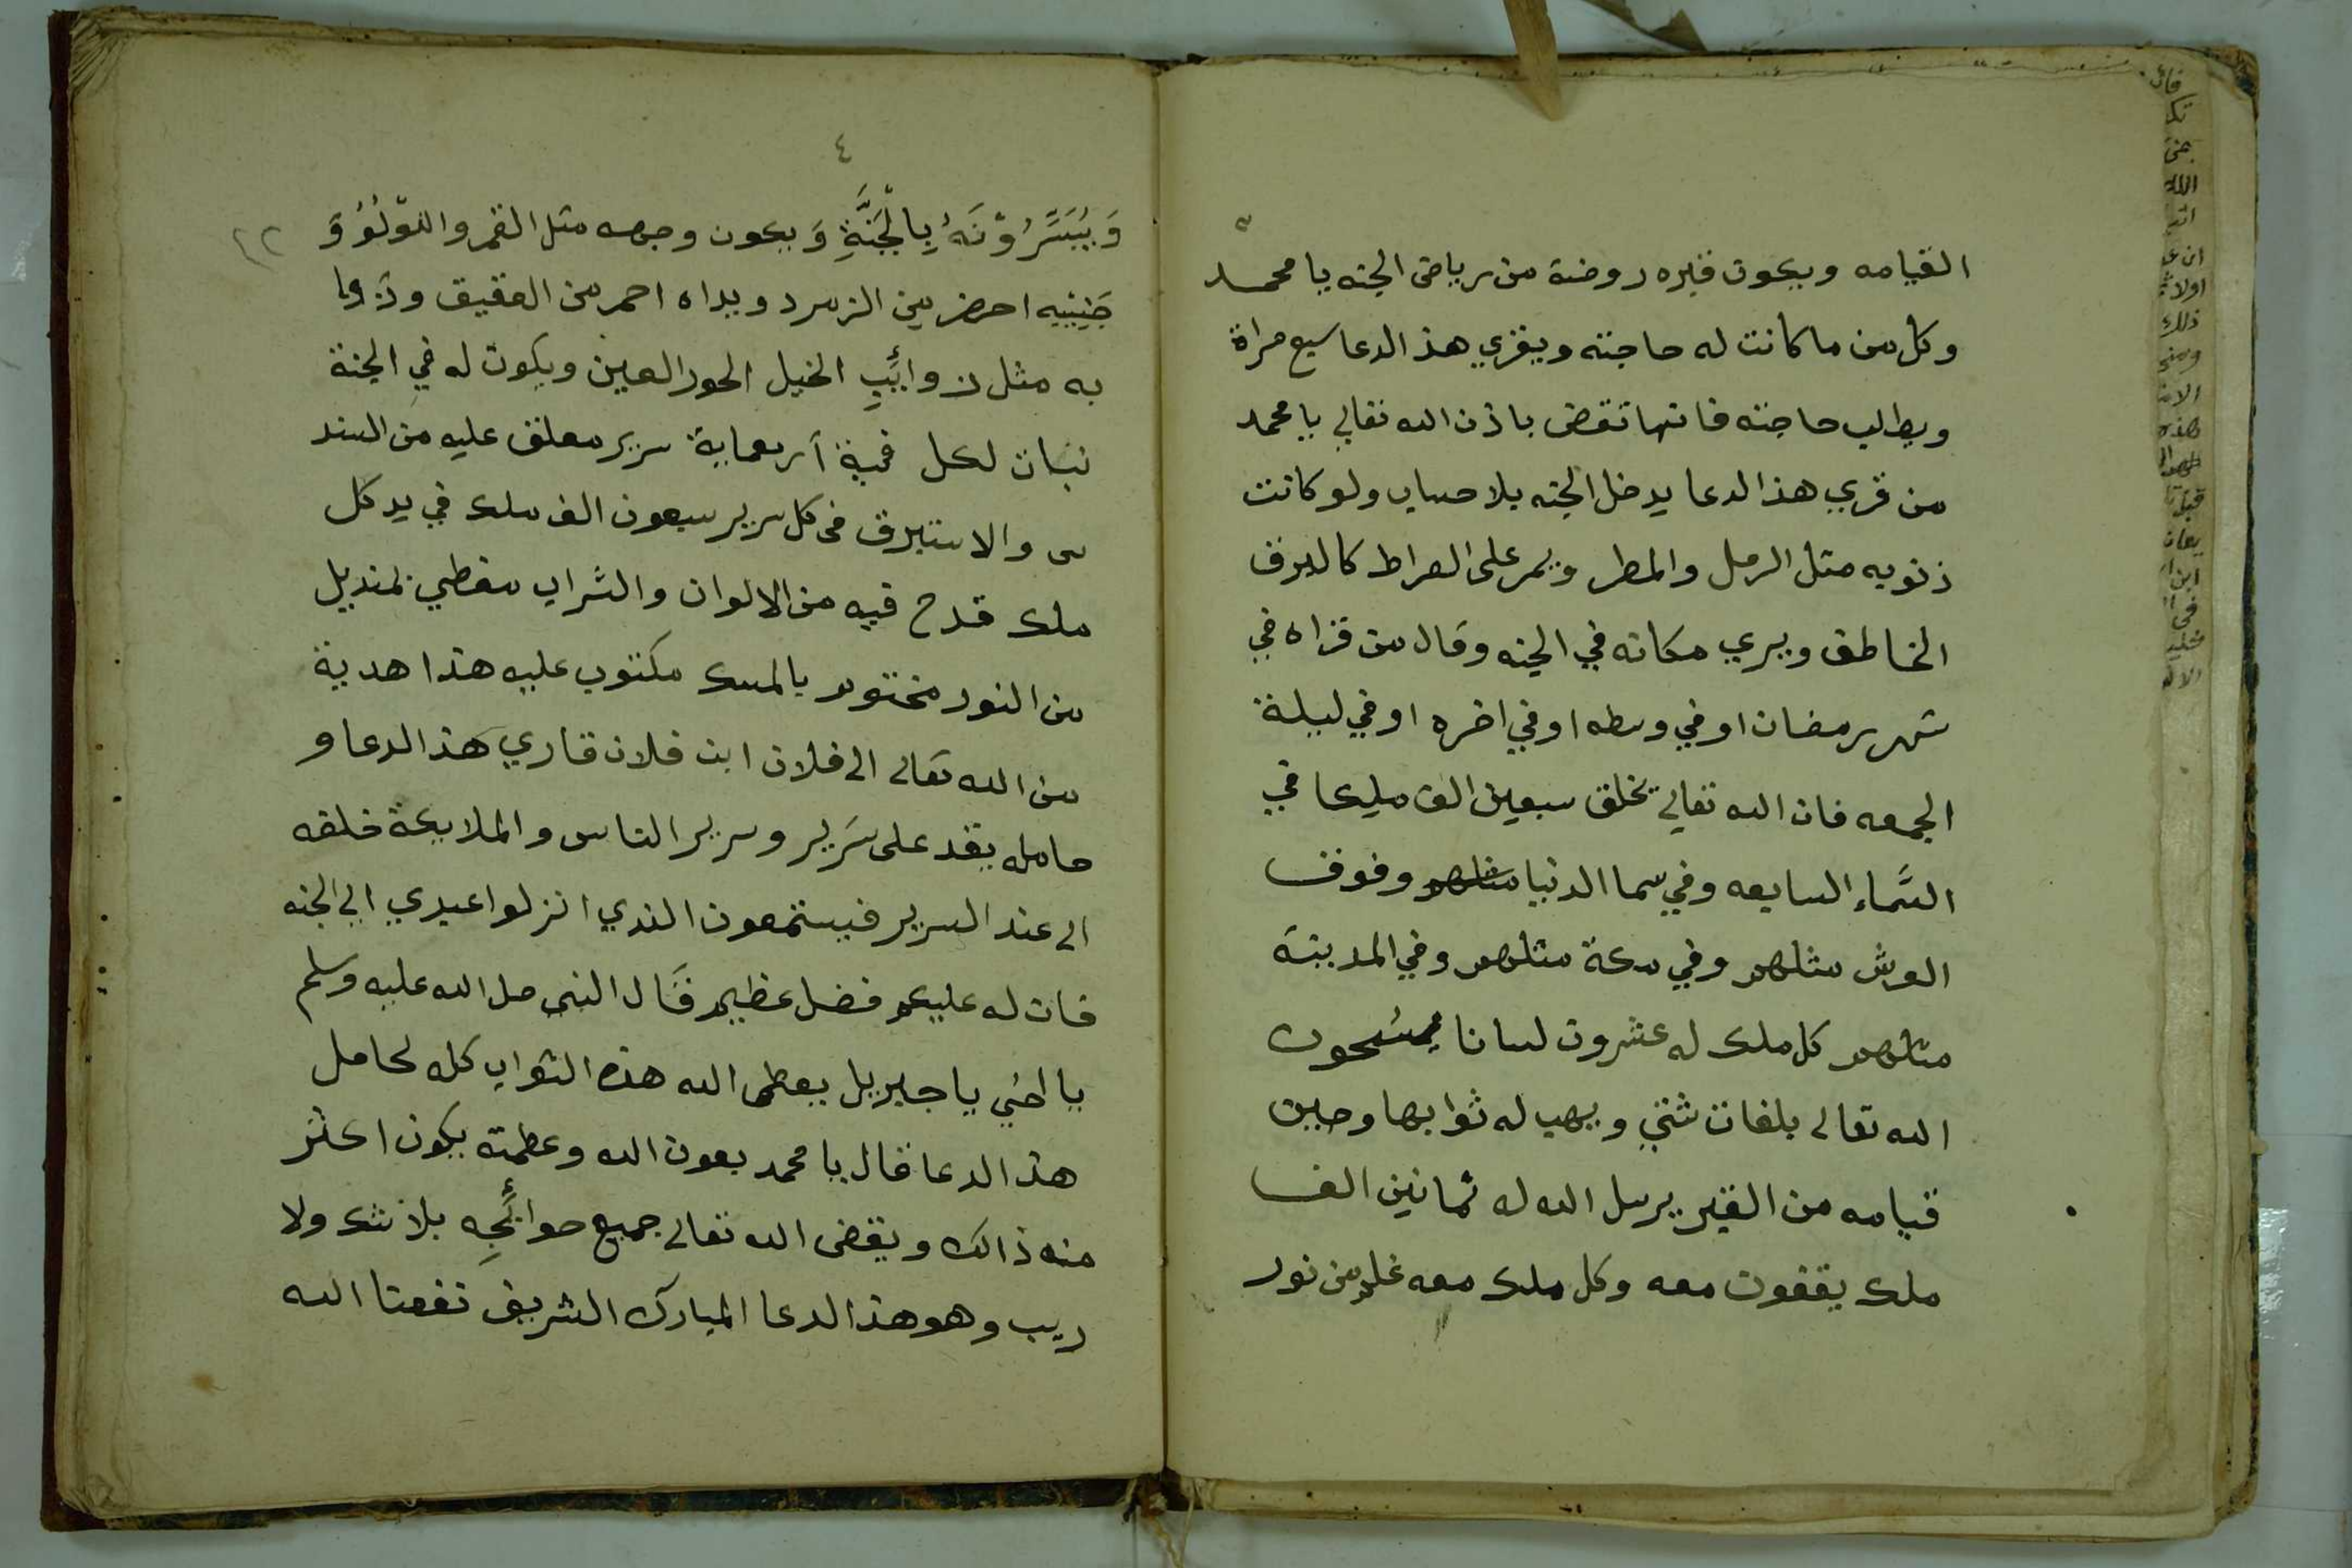 ٣
القيامه ويكون قبره روضة من رياض الجنه يا محمد
وكل من ما كانت له حاجته ويقري هذ الدعا سبع مراة
ويطلب حاجته فانها تقض باذن الله تعالي يا محمد
من قري هذ الدعا يدخل الجنه بلا حساب ولو كانت
ذنوبه مثل الرمل والمطر ويمر على الصراط كالبرق
الخاطف ويري مكانه في الجنه وقال من قراه في
شهر رمضان او في وسطه او في اخره او في ليلة
الجمعه فان الله تعالي يخلق سبعين الف مليكا في
السَّماء السابعه وفي سما الدنيا مثلهم وفوق
العرش مثلهم وفي مكة مثلهم وفي المدينة
مثلهم كل ملك له عشرون لسانا يسبحون
الله تعالى بلغات شتي ويهب له ثوابها وحين
قيامه من القبر يرسل الله له ثمانين الف
ملك يقفون معه وكل ملك معه علم من نور
٤
٢٢
وَيُبَشَّرُوْنَهُ بِالْجَنَّةِ وَيكون وجهه مثل القمر واللوْلُؤُ وَ
جَبِينِيه اخضر من الزمرد ويداه احمر من العقيق
به مثل ذوائَبِ الخيل الحور العين ويكون له في الجنة
لكل قبة أربعماية سرير معلق عليه من السند
س والاستبرق في كل سرير سبعون الف ملك في يد كل
ملك قدح فيه من الالوان والشراب مغطي بمنديل
من النور مختوم بالمسك مكتوب عليه هذا هدية
من الله تعالى الى فلان ابن فلان قاري هذ الدعا و
حامله يقد على سَرير وسرير الناس والملايكة خلفه
الى عند السرير فيستمعون الندي انزلوا عبدي الي الجنه
فان له عليكم فضل عظيم قَال النبى صل الله عليه وسلم
يا اخي يا جبريل يعطى الله هذه الثواب كله لحامل
هذ الدعا قال يا محمد بعون الله وعظمته يكون اكثر
منه ذالك ويقضى الله تعالى جميع حوائَجِه بلا شك ولا
ريب وهو هذ الدعا المبارك الشريف نفعنا الله